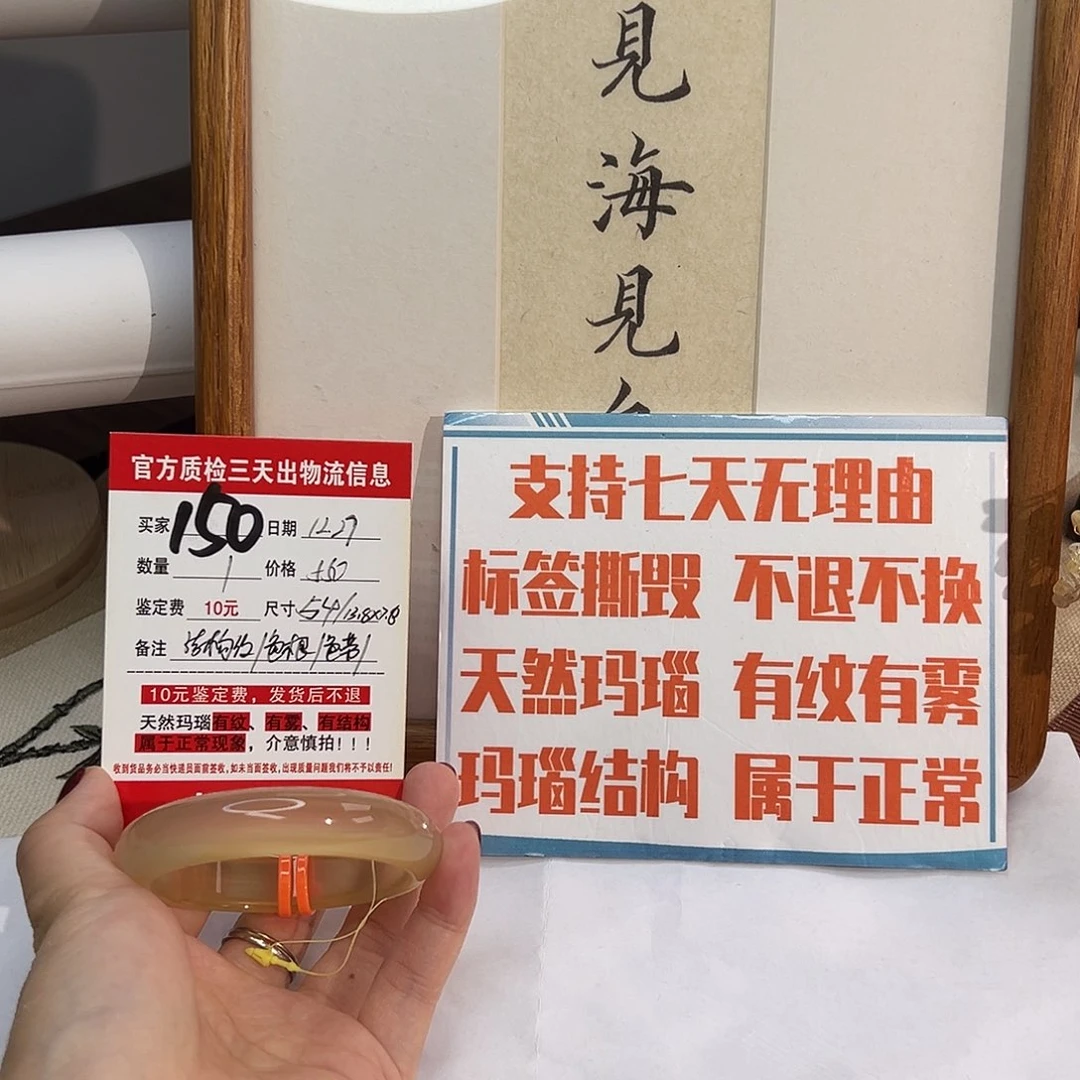 見
海
見
官方质检三天出物流信息
买家 150 日期 12.27
数量 1 价格
鉴定费 10元 尺寸 54/13.8x7.8
备注 结构纹/色根/色
10元鉴定费，发货后不退
天然玛瑙有纹、有雾、有结构
属于正常现象，介意慎拍！！！
收到货品务必当快递员面前签收，如未当面签收，出现质量问题我们将不予以责任！
支持七天无理由
标签撕毁 不退不换
天然玛瑙 有纹有雾
玛瑙结构 属于正常